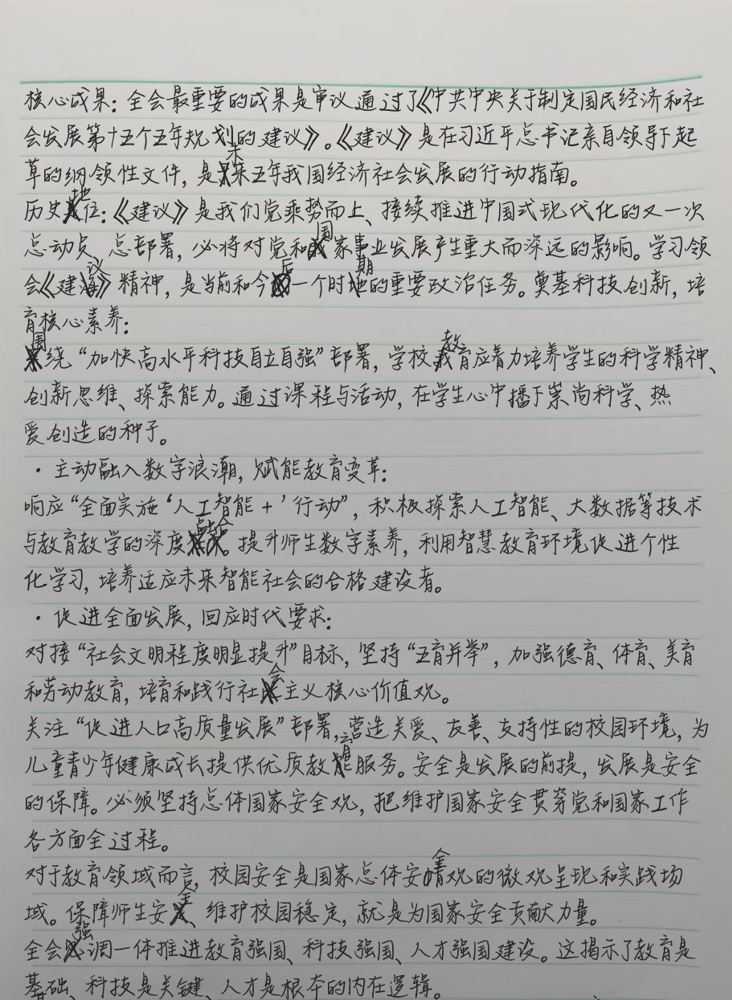 核心成果：全会最重要的成果是审议通过了《中共中央关于制定国民经济和社
会发展第十五个五年规划的建议》。《建议》是在习近平总书记亲自领导下起
草的纲领性文件，是未来五年我国经济社会发展的行动指南。
历史地位：《建议》是我们党乘势而上、接续推进中国式现代化的又一次
总动员 总部署，必将对党和国家事业发展产生重大而深远的影响。学习领
会《建议》精神，是当前和今后一个时期的重要政治任务。奠基科技创新，培
育核心素养：
围绕“加快高水平科技自立自强”部署，学校教育应着力培养学生的科学精神、
创新思维、探索能力。通过课程与活动，在学生心中播下崇尚科学、热
爱创造的种子。
·主动融入数字浪潮，赋能教育变革：
响应“全面实施‘人工智能+’行动”，积极探索人工智能、大数据等技术
与教育教学的深度融合。提升师生数字素养，利用智慧教育环境促进个性
化学习，培养适应未来智能社会的合格建设者。
·促进全面发展，回应时代要求：
对接“社会文明程度明显提升”目标，坚持“五育并举”，加强德育、体育、美育
和劳动教育，培育和践行社会主义核心价值观。
关注“促进人口高质量发展”部署，营造关爱、友善、支持性的校园环境，为
儿童青少年健康成长提供优质教育服务。安全是发展的前提，发展是安全
的保障。必须坚持总体国家安全观，把维护国家安全贯穿党和国家工作
各方面全过程。
对于教育领域而言，校园安全是国家总体安全观的微观呈现和实践场
域。保障师生安全、维护校园稳定，就是为国家安全贡献力量。
全会强调一体推进教育强国、科技强国、人才强国建设。这揭示了教育是
基础、科技是关键、人才是根本的内在逻辑。